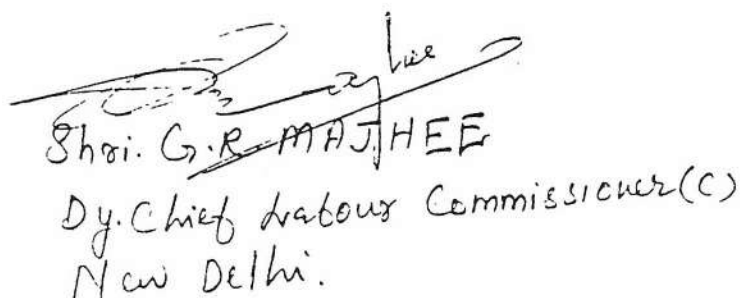 Shri. G.R. MAJHEE
Dy. Chief Labour Commissioner (C)
New Delhi.